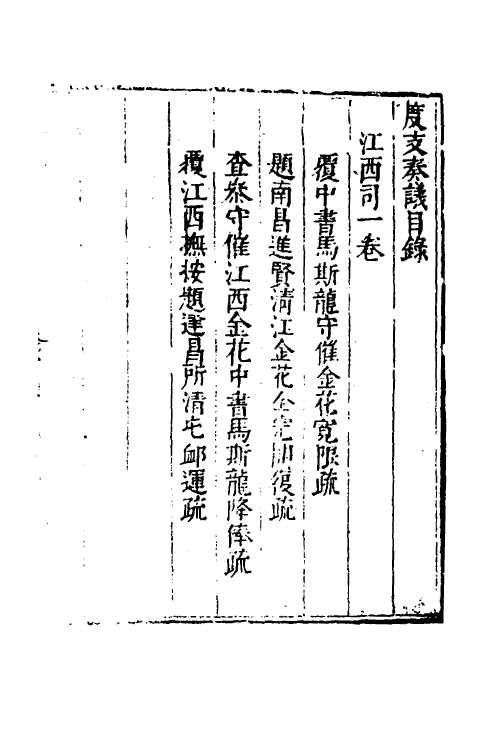 度支奏議目錄
江西司一卷
覆中書馬斯龍守催金花寬限疏
題南昌進賢清江金花全完開復疏
查參守催江西金花中書馬斯龍降俸疏
覆江西撫按題遵昌所清屯卹運疏